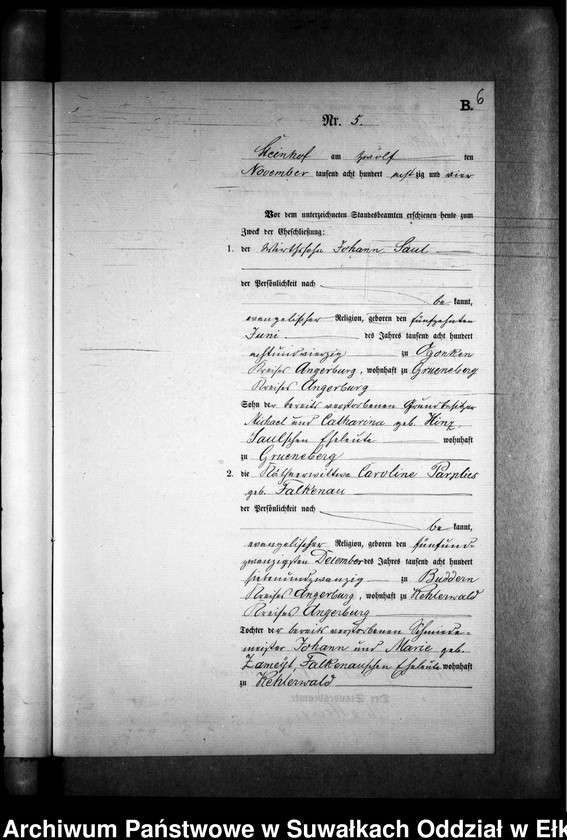 B. 6
Nr. 5.
Steinhof am zwölf ten
November tausend acht hundert achtzig und vier
Vor dem unterzeichneten Standesbeamten erschienen heute zum
Zweck der Eheschließung:
1. der Wirthssohn Johann Saul
der Persönlichkeit nach
be kannt,
evangelischer Religion, geboren den fünfzehnten
Juni des Jahres tausend acht hundert
achtundvierzig zu Ogonken
Kreises Angerburg, wohnhaft zu Grueneberg
Kreises Angerburg
Sohn der bereits verstorbenen Grundbesitzer
Michael und Catharina geb. Hinz
Saulschen Eheleute wohnhaft
zu Grueneberg
2. die Käthnerwittwe Caroline Parplies
geb. Falkenau
der Persönlichkeit nach
be kannt,
evangelischer Religion, geboren den fünfund-
zwanzigsten December des Jahres tausend acht hundert
siebenundzwanzig zu Buddern
Kreises Angerburg, wohnhaft zu Kehlerwald
Kreises Angerburg
Tochter der bereits verstorbenen Schmiede-
meister Johann und Marie geb.
Falkenauschen Eheleute wohnhaft
zu Kehlerwald
Archiwum Państwowe w Suwałkach Oddział w Ełk